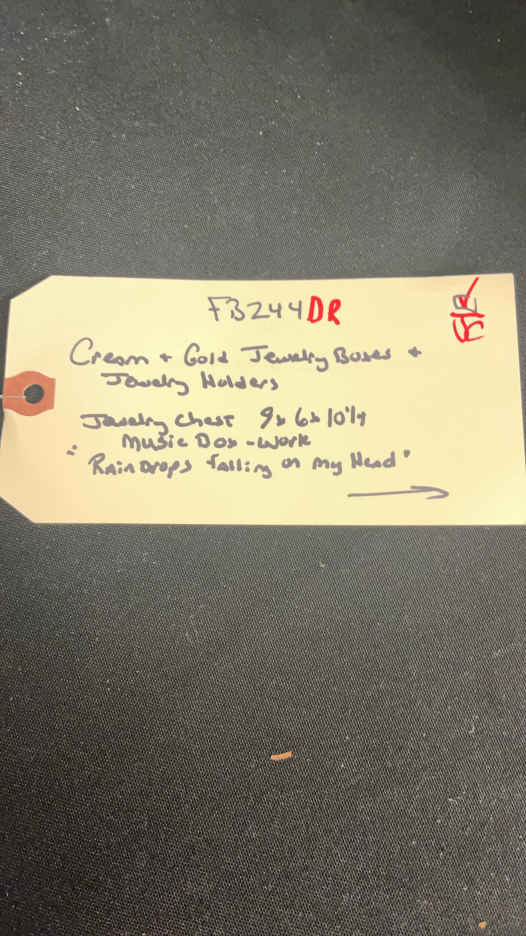 FB244DR
Cream + Gold Jewelry Boxes +
Jewelry Holders
Jewelry Chest 9x6x10 1/4
Music Box - Work
"Rain Drops falling on My Head"